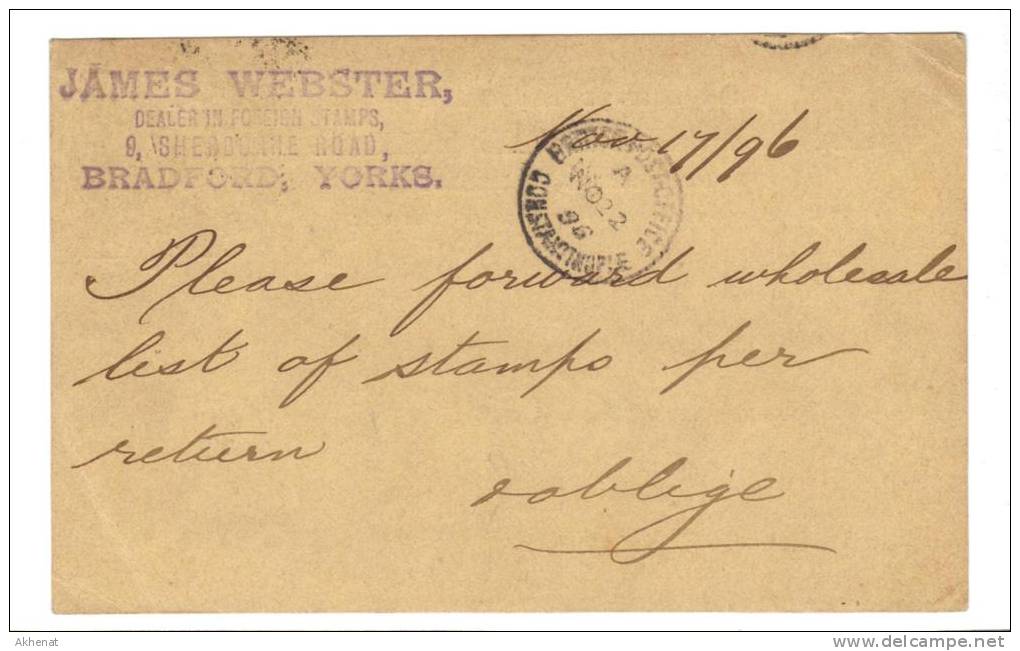 JAMES WEBSTER,
DEALER IN FOREIGN STAMPS,
9, SHERBOURNE ROAD,
BRADFORD, YORKS.
Nov 17/96
BRITISH POST OFFICE
A
NO 22
96
CONSTANTINOPLE
Please forward wholesale
list of stamps per
return
& oblige
Akhenat
www.delcampe.net